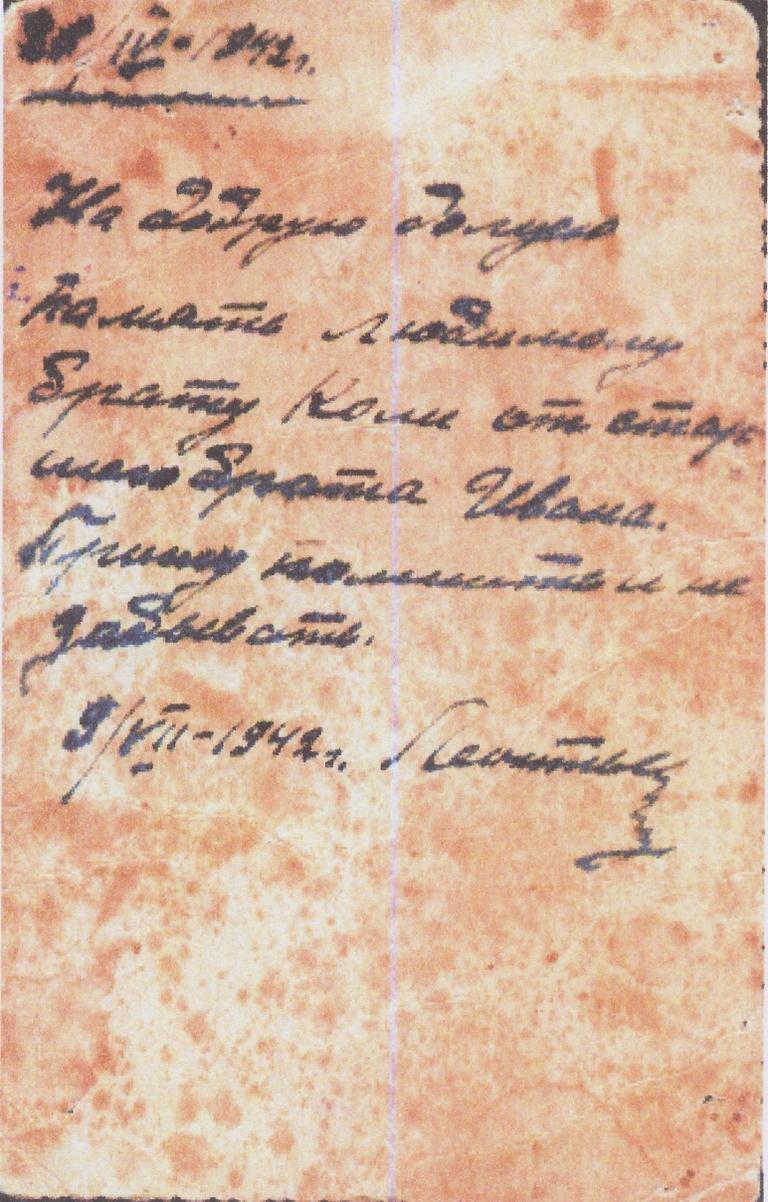 /IV-1942г.
На добрую долгую
память любимому
брату Коли от стар
шего брата Ивана.
Прошу помнить и не
забывать.
9/VII-1942г.